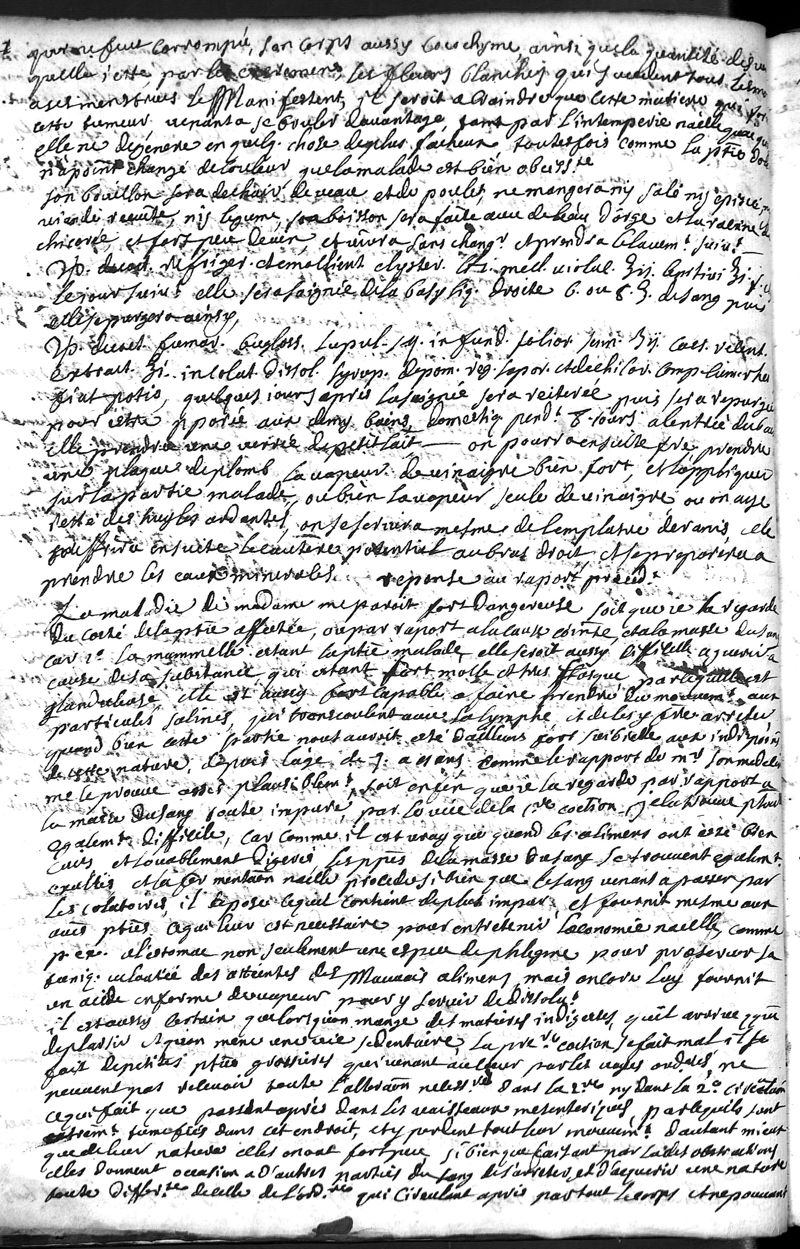 qui ne fut corrompu, son corps aussy cacochyme, ainsi que la quantité des
quelle iette par les excremens, les fleurs blanches qui succedent tous les
a ses menstrues le Manifestent, il seroit a craindre que cette matiere qui
cette tumeur venant a se bruler davantage tant par l'intemperie naelle que
elle ne degenere en quelq. chose de plus facheux toutesfois comme la ptie
n'a point changé de couleur que la malade est bien obeiss.te
son bouillon sera de chair de veau et de poulet, ne mangera ny salé ny epicé
viande recuite, ny legume, sa boisson sera faite avec de l'eau d'orge et la racine
chicorée et fort peu de vin et vivra sans chang.r et prendra le lavem.t suiv.t
℞. decoct. refriger. et emollient clyster. mell. violac. ℥ij.
le jour suiv.t elle sera saignée de la basyliq. droite 6. ou 8. ℥. de sang puis
elle se purgera ainsy,
℞. decoct. fumar. bugloss. lupul. in fund. folior. senn. ʒij.
extract. ʒi. in colat. dissol. syrup. de pom. reg. sapor. et de chicor. comp. cum rha
fiat potio, quelques iours apres la saignée sera reiterée puis sera repurgée
pour estre pposée aux demy bains domestiq. pend.t 8. iours a l'entrée du bain
elle prendra une verrée de petit lait — on pourra ensuite fre prendre
une plaque de plomb la vapeur de vinaigre bien fort, et l'appliquer
sur la partie malade, ou bien la vapeur seule de vinaigre ou on aye
jetté des huyles ardentes, on se servira mesme de l'emplatre de ranis, elle
souffrira ensuite le cautere potentiel au bras droit et se preparera a
prendre les eaux minerales. reponse au raport preced.t
La maladie de madame me paroit fort dangereuse soit que ie la regarde
du costé de la ptie affectée, ou par raport a la cause cointe et a la masse du sang
car 1.o la mammelle estant la ptie malade, elle seroit aussy difficille a guerir a
cause de sa substance, qui estant fort molle et tres flasque parcequ'elle est
glanduleuse, elle est aussy fort capable a faire prendre du mouvem.t aux
particules salines, qui transcoulent avec la lymphe et de les y fre arreter
quand bien cette partie n'ont auroit esté d'ailleurs fort suiette aux indispoon
de cette nature, depuis l'age de ans comme le rapport de m.r son medecin
me le prouve assés plausiblem.t, soit enfin que ie la regarde par rapport a
la masse du sang toute impure, par le vice de la coction je la trouve plus
egalem.t difficile, car comme il est vray que quand les alimens ont esté bien
cuits et louablement digerés les ppes de la masse du sang se trouvent egalem.t
exaltés et la fermentaon naelle procede si bien que le sang venant a passer par
les colatoires, il depose ce qu'il contient de plus impur, et fournit mesme aux
aues pties ce qui leur est necessaire pour entretenir l'oeconomie naelle, comme
p. ex. a l'estomac non seulement une espece de phlegme pour preserver sa
tuniq. veloutée des atteintes des Mauvais alimens, mais encore luy fournit
un acide en forme de vapeur pour y servir de dissolv.t
il est aussy certain que lorsqu'on mange des matieres indigestes, qu'il arrive
deplaisir et qu'on mene une vie sedentaire, la pre.re coction se fait mal il se
fait de petites pties grossieres qui venant au coeur par les voyes ord.res, ne
peuvent pas recevoir toute l'alteraon necess.re dans la 1.re ny dans la 2.e circulaon
ce qui fait que passant apres dans les vaisseaux mesenteriques, par lequels sont
extrem.t tumefiés dans cet endroit, et y perdent tout leur mouvem.t d'autant mieux
que de leur nature elles en ont fort peu, si bien que faisant par la des obstructions
elles donnent occasion a d'autres parties du sang de s'arreter, et d'acquerir une nature
toute differ.te de celle de l'ord.re qui circulent apres par tout le corps et ne pouvant